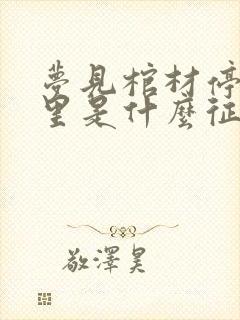 夢見棺材停
里是什麼征
敬澤昊